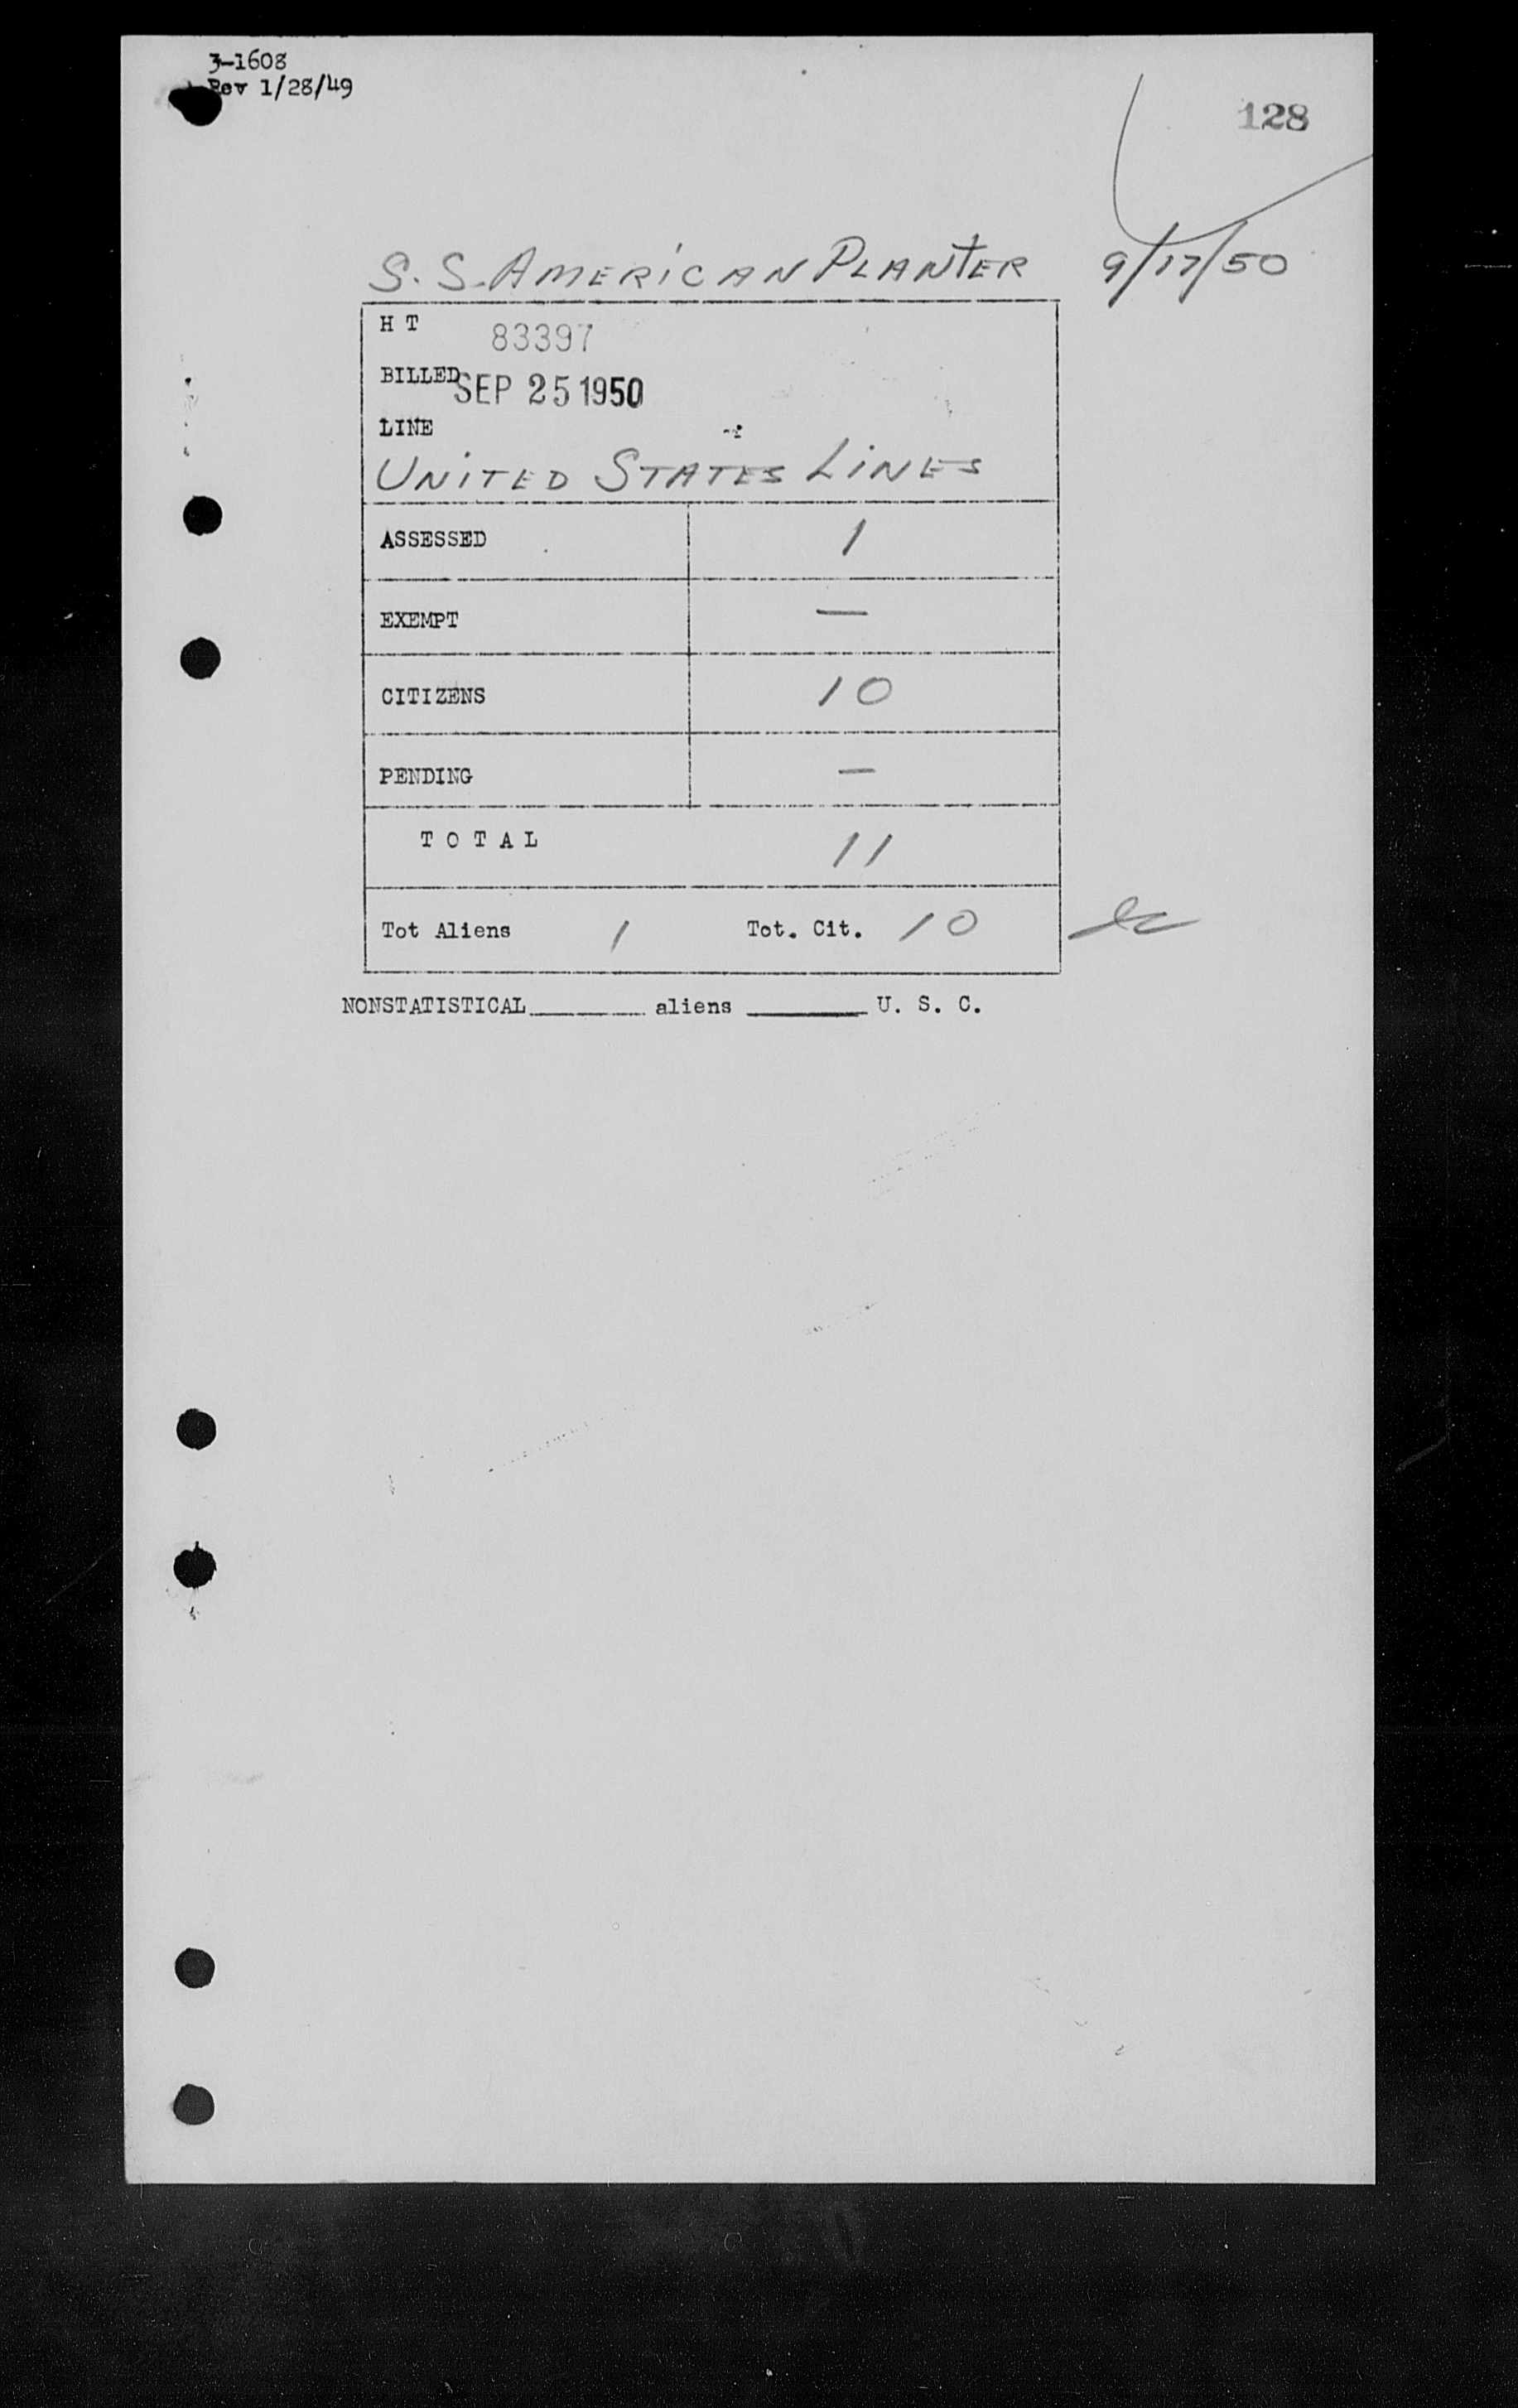 3-1608
Rev 1/28/49
128
S.S. AMERICAN PLANTER 9/17/50
H T 83397
BILLED SEP 25 1950
LINE
UNITED STATES LINES
ASSESSED 1
EXEMPT —
CITIZENS 10
PENDING —
T O T A L 11
Tot Aliens 1 Tot. Cit. 10
NONSTATISTICAL______ aliens ______ U. S. C.